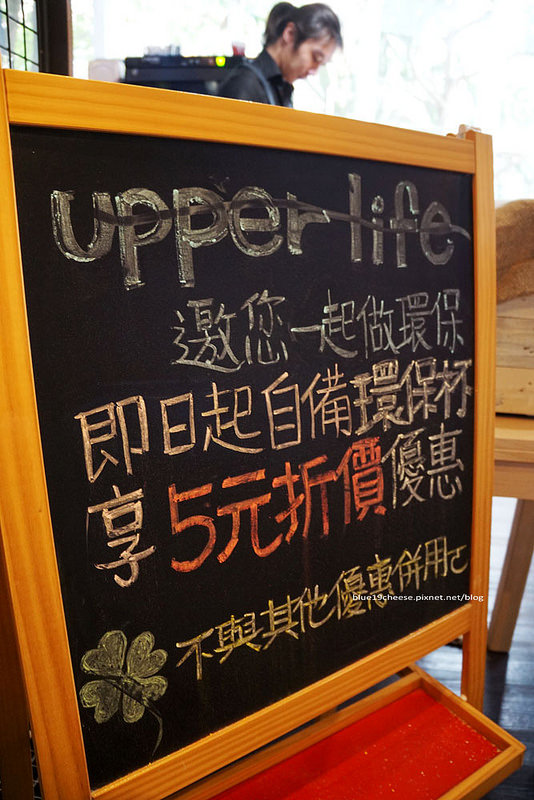 upper life
邀您一起做環保
即日起自備環保杯
享5元折價優惠
不與其他優惠併用
blue19cheese.pixnet.net/blog